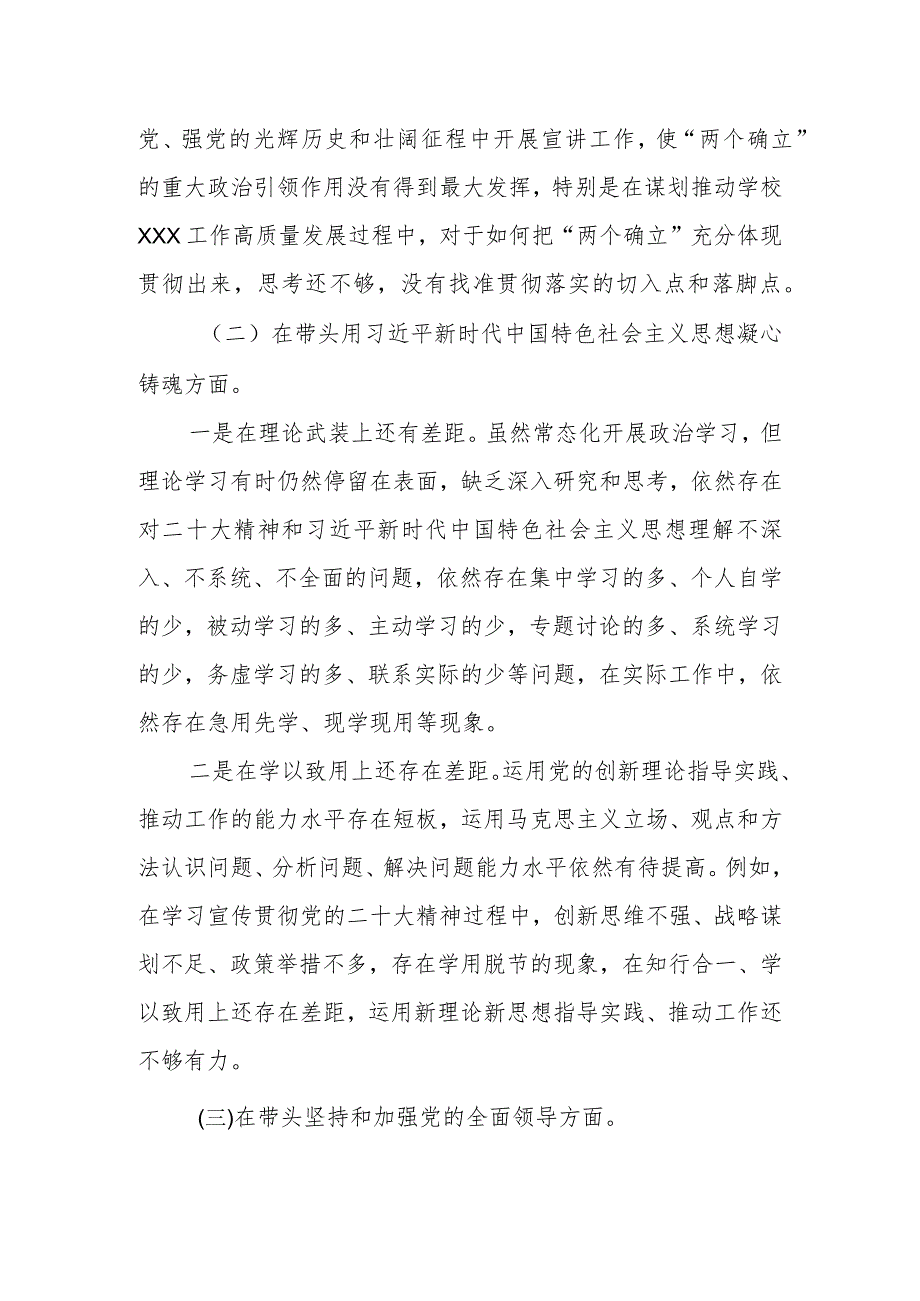 党、强党的光辉历史和壮阔征程中开展宣讲工作，使“两个确立”
的重大政治引领作用没有得到最大发挥，特别是在谋划推动学校
XXX工作高质量发展过程中，对于如何把“两个确立”充分体现
贯彻出来，思考还不够，没有找准贯彻落实的切入点和落脚点。
（二）在带头用习近平新时代中国特色社会主义思想凝心
铸魂方面。
一是在理论武装上还有差距。虽然常态化开展政治学习，但
理论学习有时仍然停留在表面，缺乏深入研究和思考，依然存在
对二十大精神和习近平新时代中国特色社会主义思想理解不深
入、不系统、不全面的问题，依然存在集中学习的多、个人自学
的少，被动学习的多、主动学习的少，专题讨论的多、系统学习
的少，务虚学习的多、联系实际的少等问题，在实际工作中，依
然存在急用先学、现学现用等现象。
二是在学以致用上还存在差距。运用党的创新理论指导实践、
推动工作的能力水平存在短板，运用马克思主义立场、观点和方
法认识问题、分析问题、解决问题能力水平依然有待提高。例如，
在学习宣传贯彻党的二十大精神过程中，创新思维不强、战略谋
划不足、政策举措不多，存在学用脱节的现象，在知行合一、学
以致用上还存在差距，运用新理论新思想指导实践、推动工作还
不够有力。
(三)在带头坚持和加强党的全面领导方面。